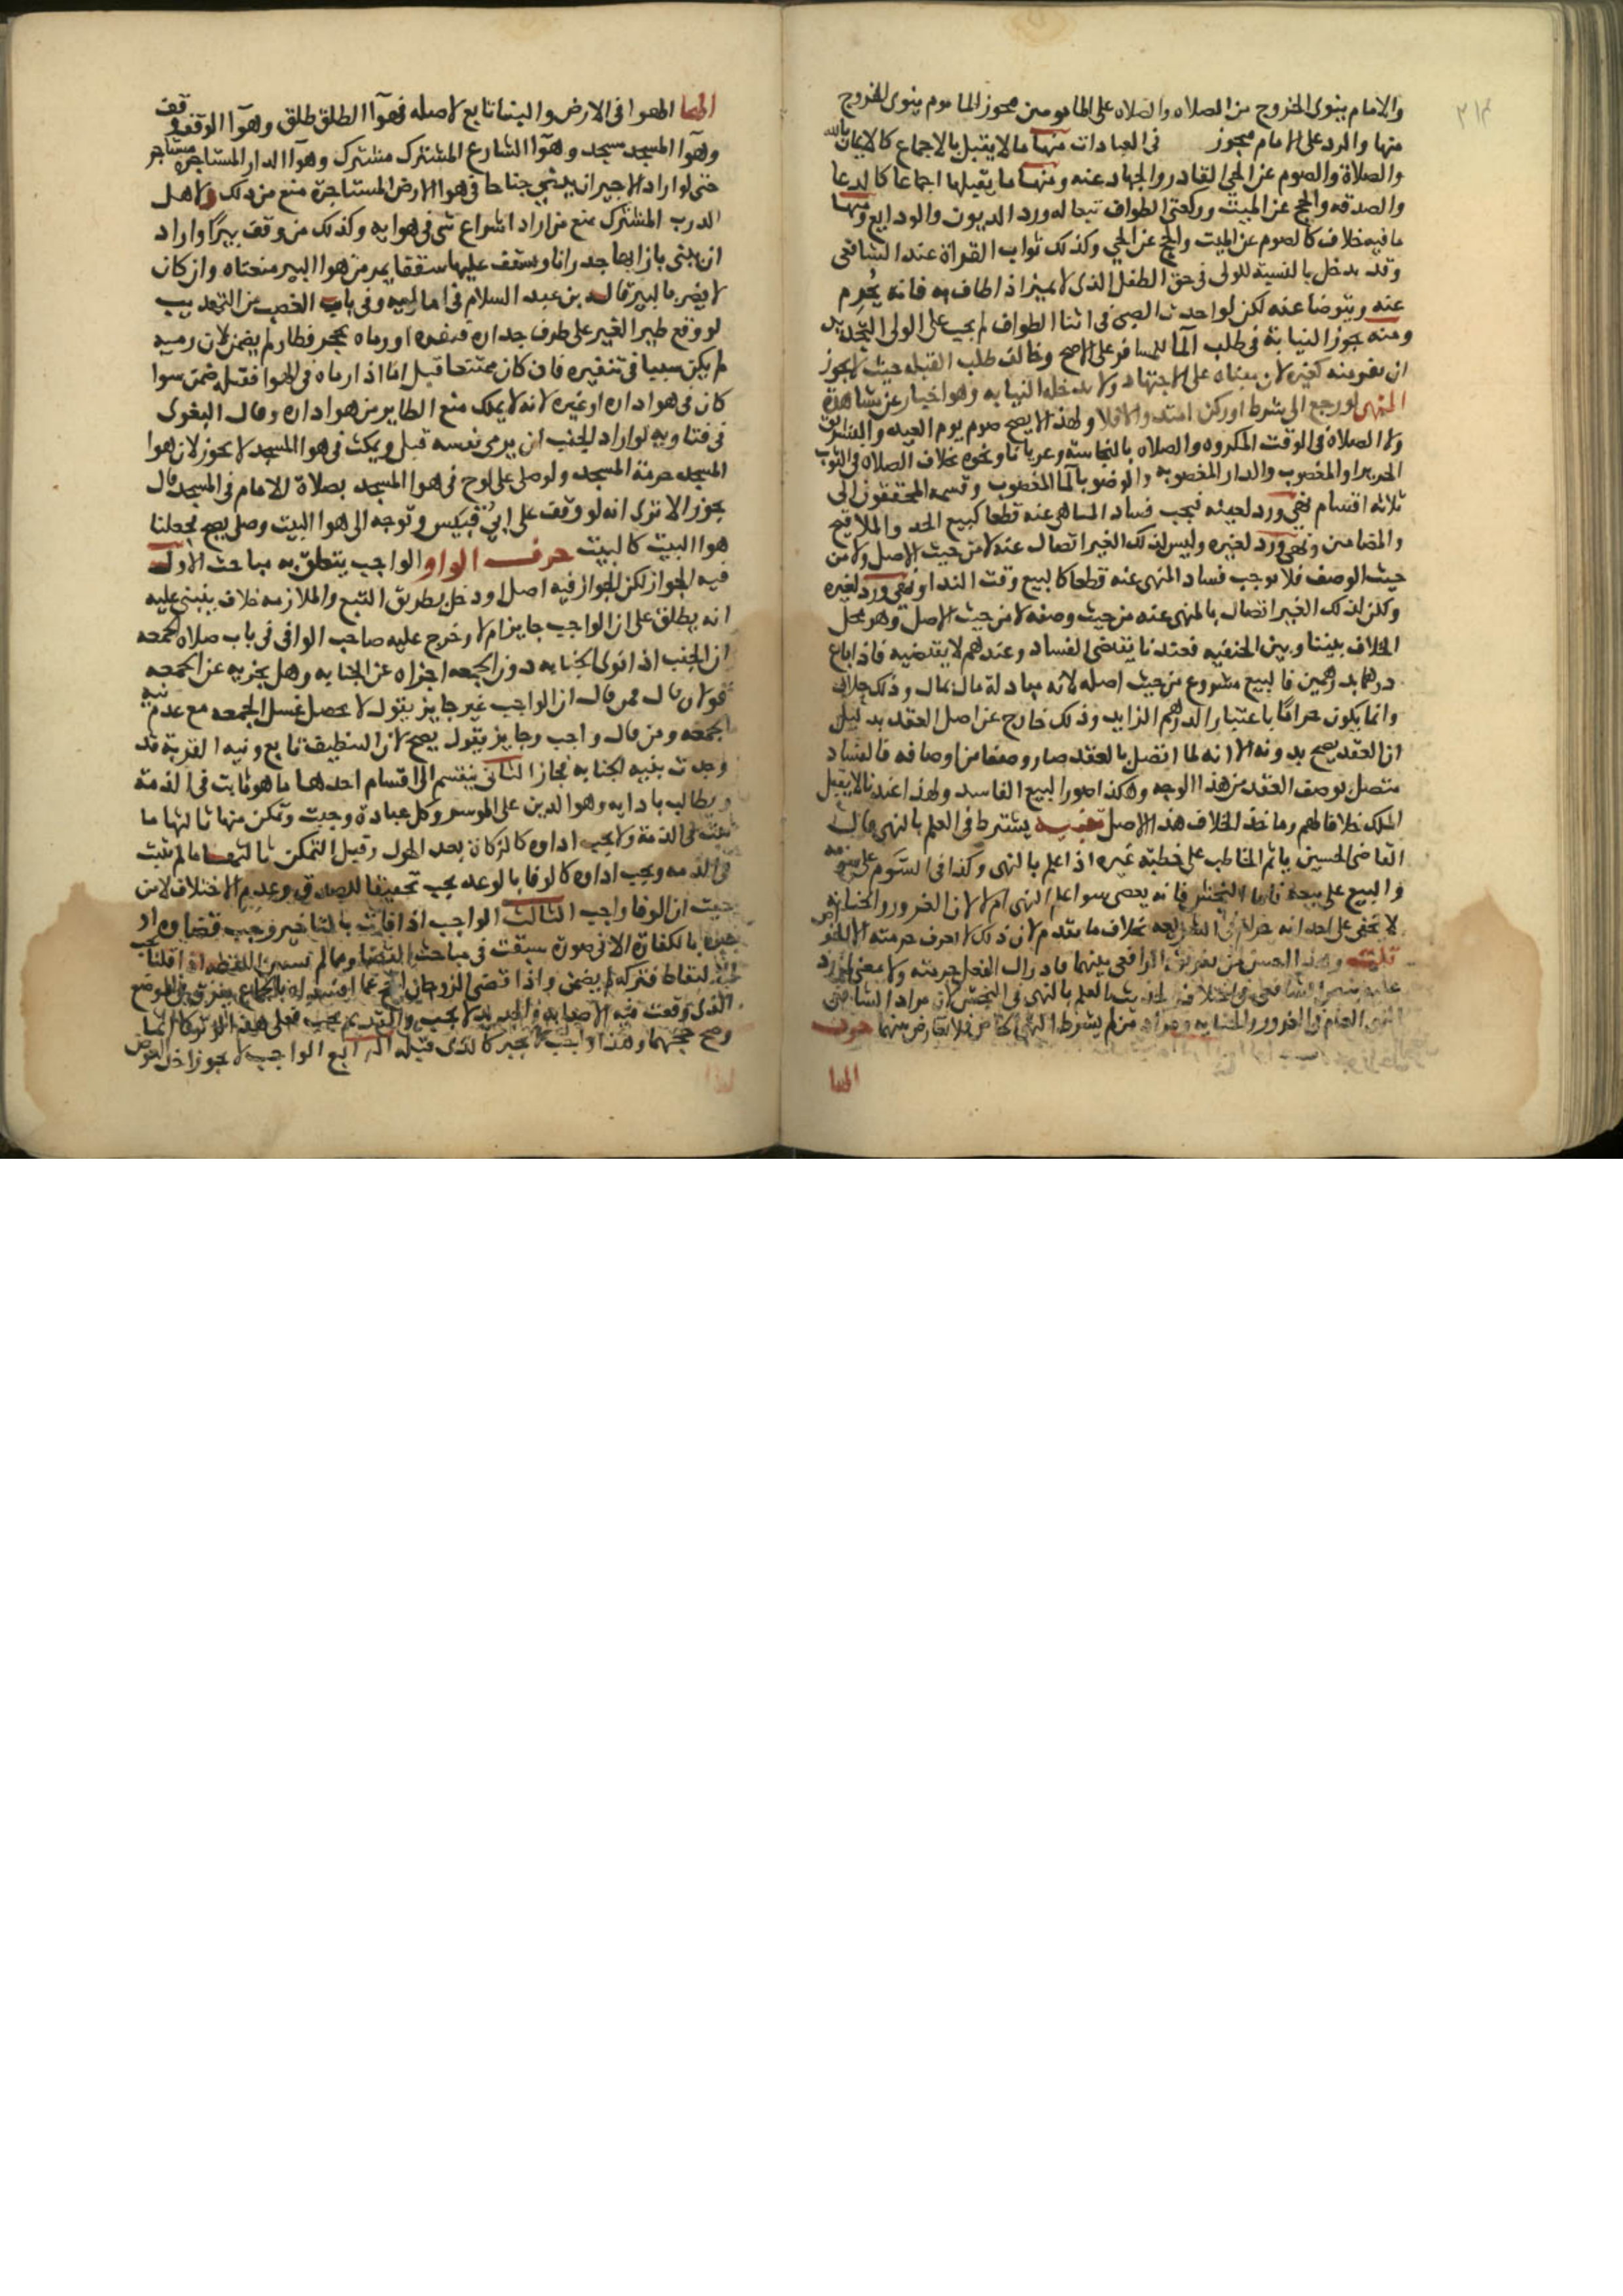 ٣١٣
والامام ينوى الخروج من الصلاه والصلاه على المامومين مجوز الماموم ينوى الخروج
منها والرد على الامام مجوز فى العبادات منها ما لا يقبل بالاجماع كالايمان بالله
والصلاة والصوم عن الحي القادر والجهاد عنه ومنها ما يقبلها اجماعا كالدعا
والصدقه والحج عن الميت وركعتى الطواف تبعا له ورد الديون والودايع ومنها
ما فيه خلاف كالصوم عن الميت والحج عن الحي وكذلك ثواب القراة عند الشافعى
وقد يدخل بالنسبة للولى فى حق الطفل الذى لا يميز اذا طاف به فانه يحرم
عنه ويتوضا عنه لكن لو احدث الصبى فى اثنا الطواف لم يجب على الولى التجديد
ومنه جوز النيابة فى طلب المآ للمسافر على الاصح وخالف طلب القبله حيث لا يجوز
ان يقومنه كغيره لان مبناه على الاجتهاد ولا يدخله النيابه وهو اخبار عن مشاهدة
النهى لو رجع الى شرط او ركن افسد والا فلا ولهذا لا يصح صوم يوم العيد والتشريق
ولا الصلاة فى الوقت المكروه والصلاه بالنجاسة وعريانا ونحوه بخلاف الصلاه فى الثوب
الحرير او المغصوب والدار المغصوبه والوضو بالمآ المغصوب وقسمه المحققون الى
ثلاثة اقسام نهى ورد لعينه فيجب فساد المنهى عنه قطعا كبيع الحر والملاقيح
والمضامين ونهى ورد لغيره وليس لذلك الغير اتصال عنه لا من حيث الاصل ولا من
حيث الوصف فلا يوجب فساد المنهى عنه قطعا كالبيع وقت الندا ونهى ورد لغيره
ولكن لذلك الغير اتصال بالمنهى عنه من حيث وصفه لا من حيث الاصل وهو محل
الخلاف بيننا وبين الحنفيه فعندنا يقتضى الفساد وعندهم لا يقتضيه فاذا باع
درهما بدرهمين فالبيع مشروع من حيث اصله لانه مبادلة مال بمال وذلك حلال
وانما يكون حراما باعتبار الدرهم الزايد وذلك خارج عن اصل العقد بدليل
ان العقد يصح بدونه الا انه لما اتصل بالعقد صار وصفا من اوصافه فالفساد
متصل بوصف العقد من هذا الوجه وهكذا صور البيع الفاسد ولهذا عندنا لا يقبل
الملك خلافا لهم وماخذ الخلاف هذا الاصل تنبيه يشترط فى العلم بالنهى قال
القاضى الحسين ياثم الخاطب على خطبة غيره اذا علم بالنهى وكذا فى السوم على سومه
والبيع على بيعه فاما النجش فانه يعصى سوا علم النهى ام لا لان الغرور والخيانه
لا تخفى على احد انه حرام بخلاف ما تقدم لان ذلك لا اعرف حرمته الا بالخبر
قلت وهذا احسن من تفريق الرافعى بينهما
حرف
الها
الها الهوا فى الارض والبنا تابع لاصله فهوآ الطلق طلق وهوآ الوقف وقف
وهوآ المسجد مسجد وهوآ الشارع المشترك مشترك وهوآ الدار المستاجره مستاجر
حتى لو اراد الاجير ان يبنى جناحا فى هوا الارض المستاجرة منع من ذلك ولاهل
الدرب المشترك منع من اراد اشراع شى فى هوايه وكذلك من وقف بيرا واراد
ان يبنى بازايها جدرانا ويسقف عليها سقفا يمر من هوا البير منعناه وان كان
لا يضر بالبير قاله بن عبد السلام فى اماليه وفى باب الغصب من التهذيب
لو وقع طير الغير على طرف جداره فنفره او رماه بحجر فطار لم يضمن لان رميه
لم يكن سببا فى تنفيره فان كان ممتنعا قبل اما اذا رماه فى الهوا فقتله ضمن سوا
كان فى هوا داره او غيره لانه لا يملك منع الطاير من هوا داره وقال البغوى
فى فتاويه لو اراد الجنب ان يرمى نفسه قبل ويمكث فى هوا المسجد لا يجوز لان هوا
المسجد حرمة المسجد ولو صلى على لوح فى هوا المسجد بصلاة الامام فى المسجد قال
يجوز الا ترى انه لو وقف على ابى قبيس وتوجه الى هوا البيت وصلى يصح فجعلنا
هوا البيت كالبيت حرف الواو الواجب يتعلق به مباحث الاول
فيه الجواز لكن الجواز فيه اصل او دخل بطريق التبع والملازمه خلاف ينبنى عليه
انه يطلق على ان الواجب جايز ام لا وخرج عليه صاحب الوافى فى باب صلاه الجمعه
ان الجنب اذا نوى الجنابه دون الجمعه اجزاه عن الجنابه وهل يجزيه عن الجمعه
قولان قال فمن قال ان الواجب غير جايز يقول لا يحصل غسل الجمعه مع عدم نية
الجمعه ومن قال واجب وجايز يقول يصح لان التنظيف تابع ونيه القربة قد
وجدت بنيه الجنابه فجاز الثانى ينقسم الى اقسام احدها ما هو ثابت فى الذمة
ويطالب بادايه وهو الدين على الموسر وكل عبادة وجبت وتمكن منها ثانيها ما
ثبت فى الذمة ولا يجب اداوه كالزكاة بعد الحول وقبل التمكن ثالثها ما لم يثبت
فى الذمه ويجب اداوه كالوفا بالوعد يجب تحقيقا للصدق وعدم الاختلاف لا من
حيث ان الوفا واجب الثالث الواجب اذا فات بالتاخير وجب قضاوه او
جبره بالكفارة الا فى صورة سبقت فى مباحث القضا
الالتقاط فتركه لم يضمن واذا اقتضى الزوجان
الذى وقعت فيه الاصابه
وصح حجهما كالذى قبله الرابع الواجب لا يجوز اخذ العوض